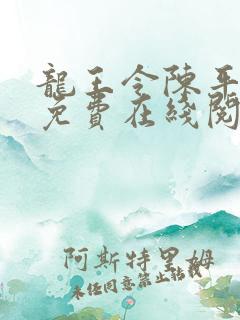 龍王令陳平
免費在綫閱
阿斯特里姆
未经同意禁止转载